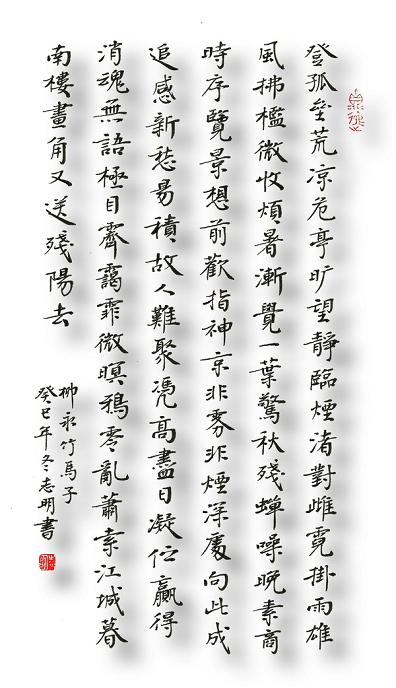 登孤壘荒凉危亭旷望靜臨煙渚對雌霓掛雨雄
風拂檻微收煩暑漸覺一葉驚秋殘蟬噪晚素商
時序覽景想前歡指神京非雾非煙深處向此成
追感新愁易積故人難聚凭高盡日凝伫贏得
消魂無語極目霽靄霏微暝鴉零亂蕭索江城暮
南樓畫角又送殘陽去
柳永竹馬子
癸巳年冬志明書